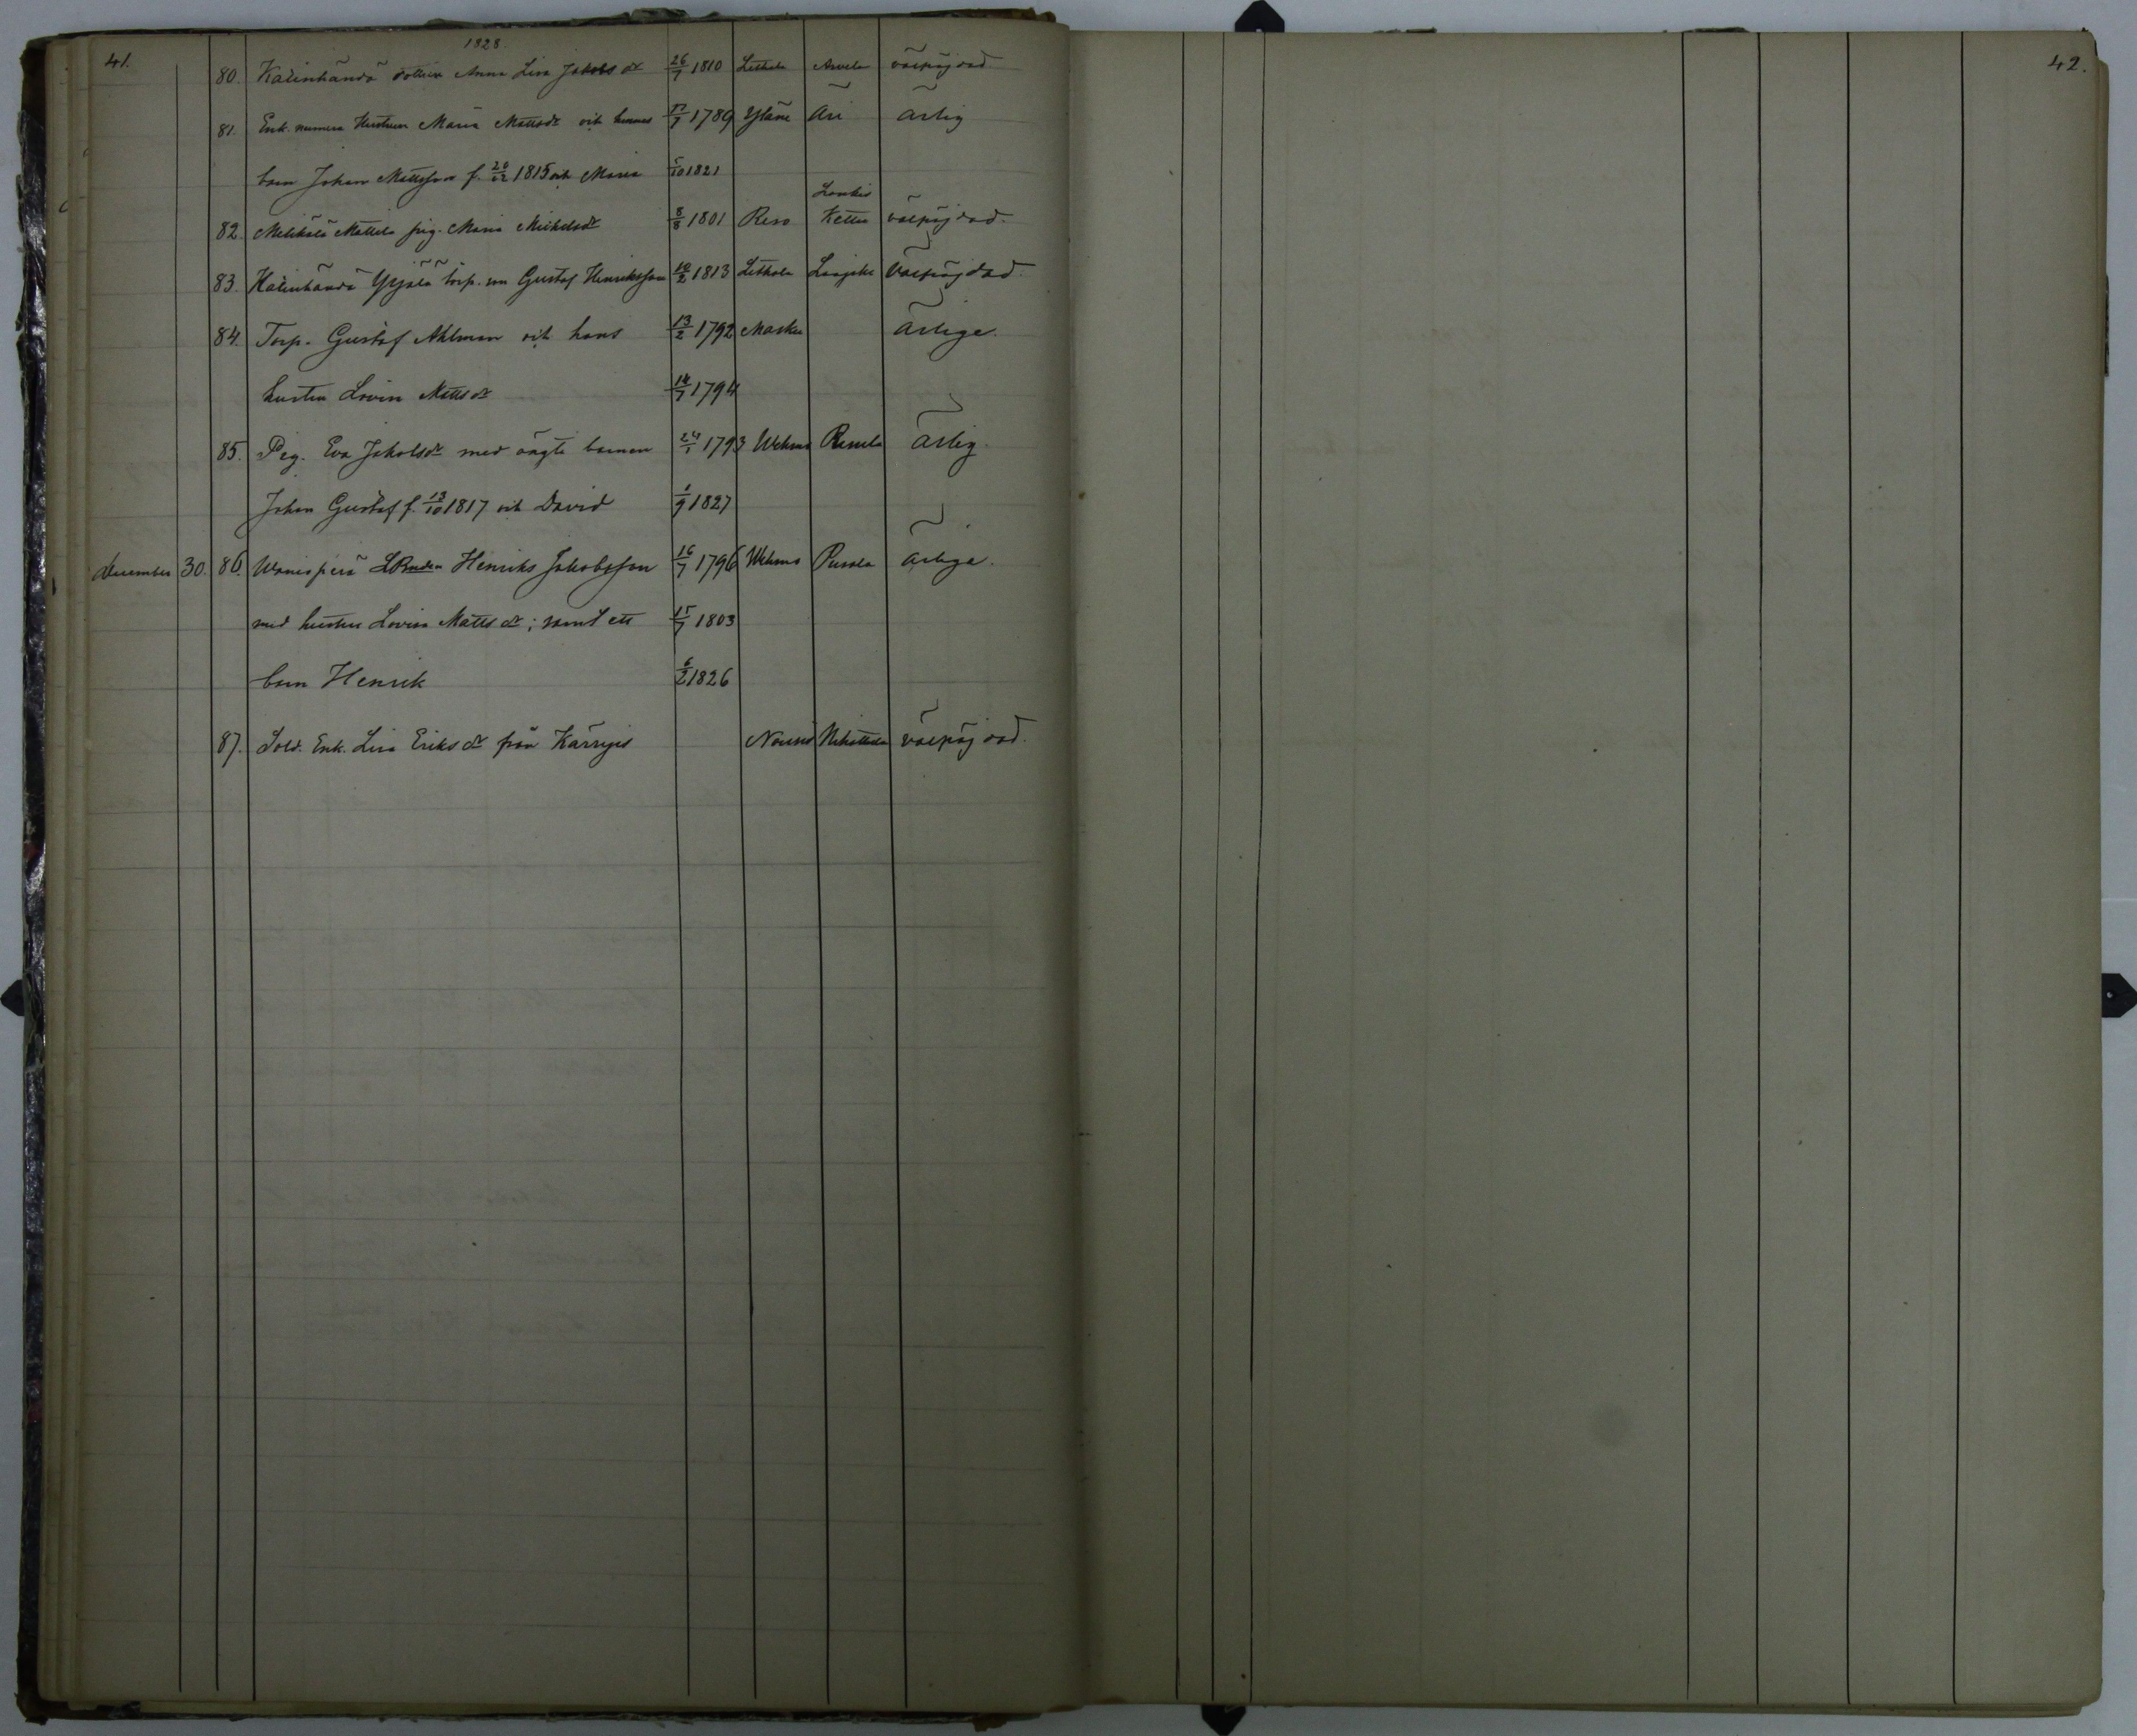 41.
1828.
80. Kalinhändä dottren Anna Lisa Jakobs dr 26/7 1810 Lethala Arvela välfräjdad
81. Enk. numera Hustrun Maria Matts dr och hennes 17/7 1789 Yläne Äri ärlig
barn Johan Mattsson f. 26/12 1815 och Maria 5/10 1821
82. Mattila pig. Maria Michels dr 8/8 1801 Reso Kettu välfräjdad.
83. Kalinhändä Yrjälä torp. son Gustaf Henriksson 10/2 1813 Lethala välfräjdad
84. Torp. Gustaf Ahlman och hans 13/2 1792 Masku ärliga.
hustru Lovisa Matts dr 14/7 1794
85. Pig. Eva Jakobs dr med oägta barnen 24/1 1793 Wehmo ärlig.
Johan Gustaf f. 13/10 1817 och David 1/9 1827
december 30. 86. Henrik Jakobsson 16/7 1796 Wehmo ärliga.
med hustru Lovisa Matts dr; samt ett 15/7 1803
barn Henrik 6/2 1826
87. Sold. Enk. Lisa Eriks dr från Nousis välfräjdad.
42.